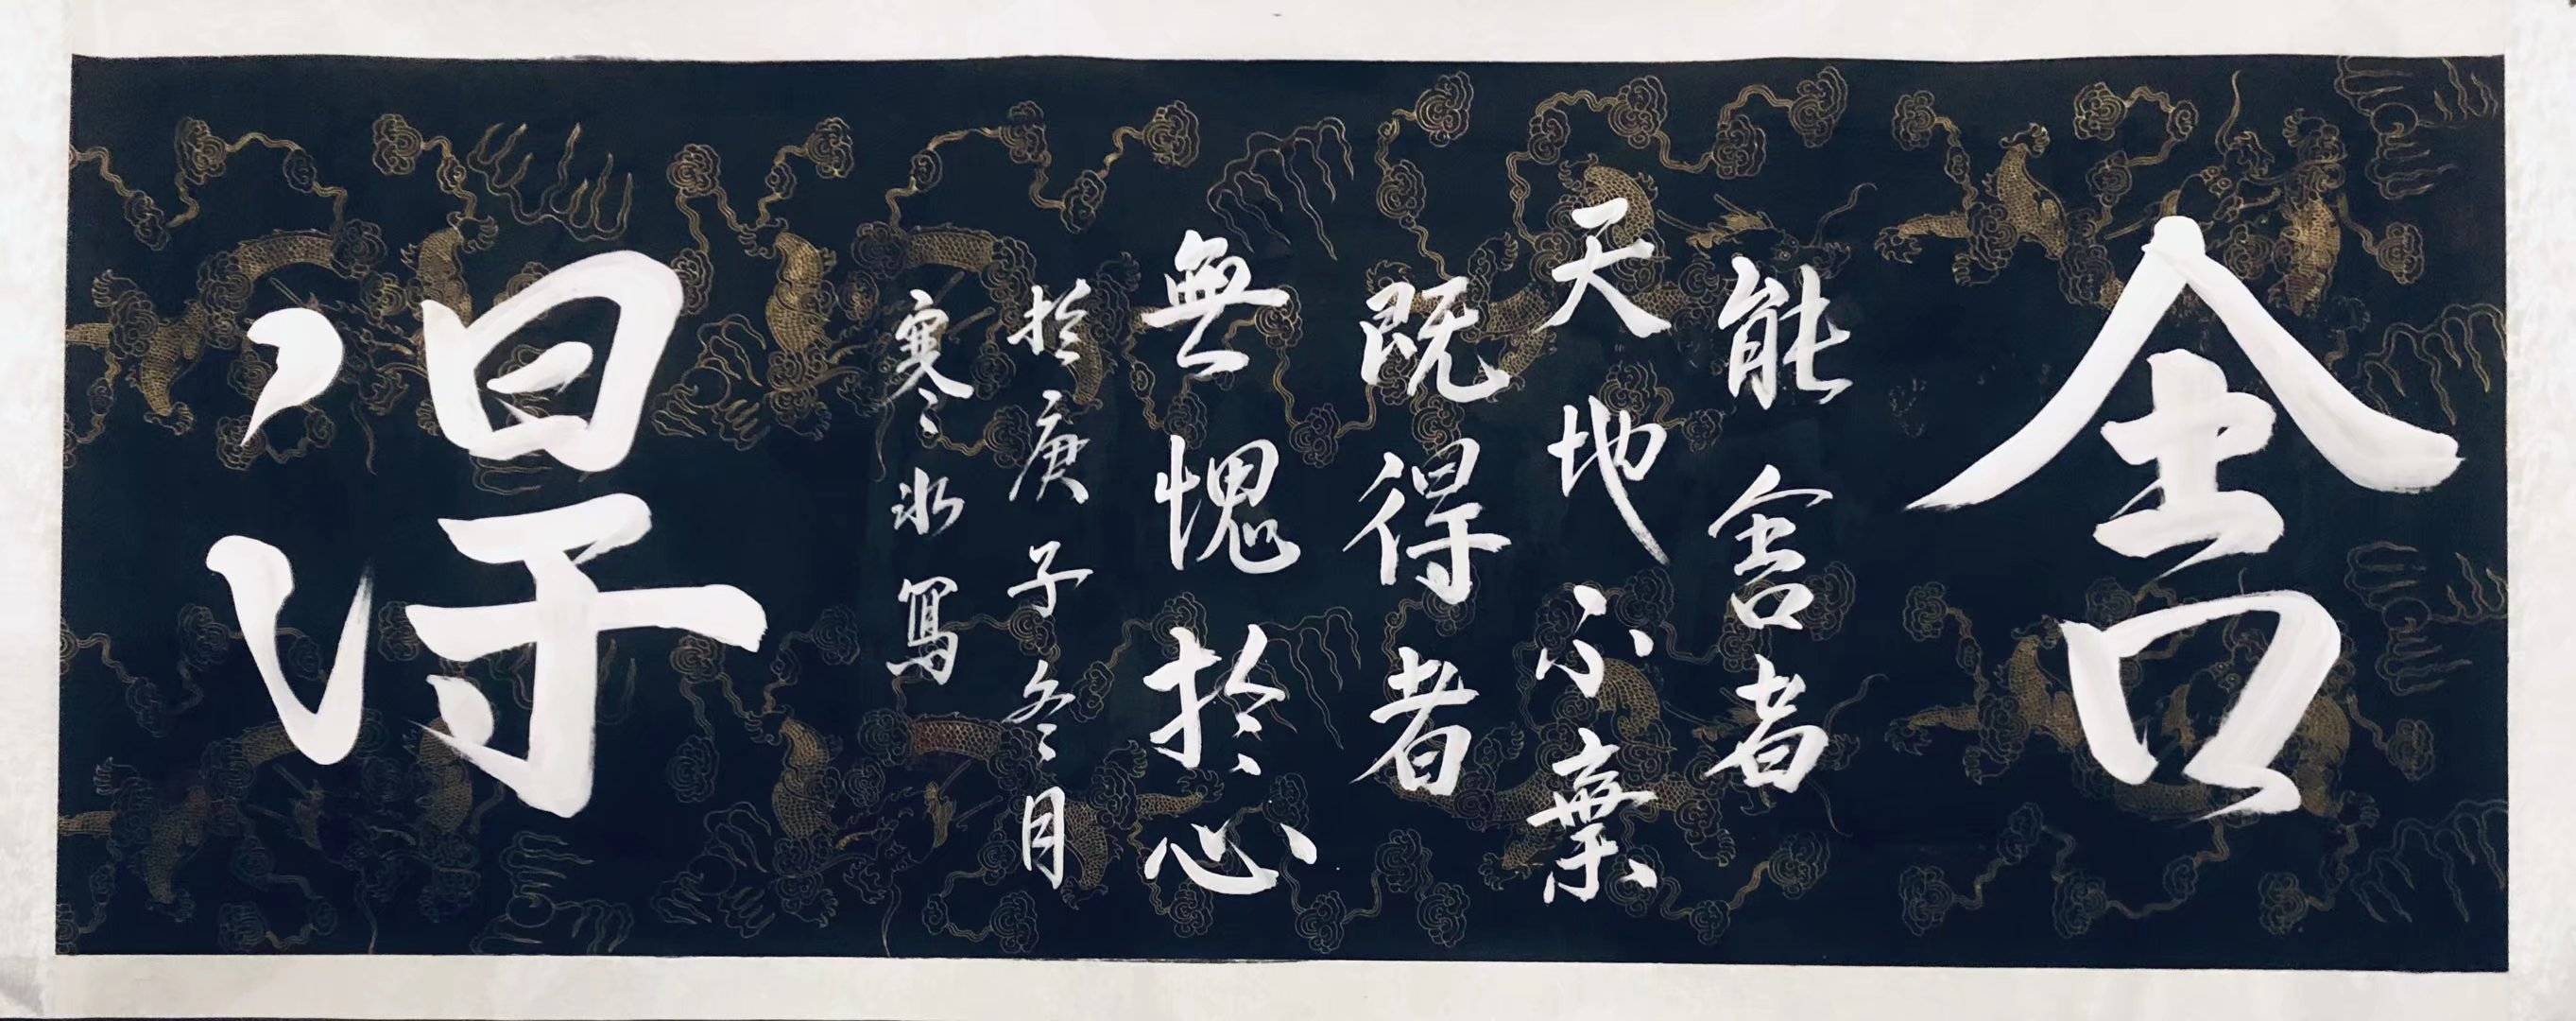 舍
能舍者
天地不棄
既得者
無愧於心
於庚子冬月
寒冰寫
得